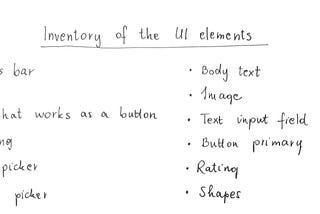 Inventory of the UI elements
s bar
hat works as a button
ng
picker
picker
• Body text
• Image
• Text input field
• Button primary
• Rating
• Shapes